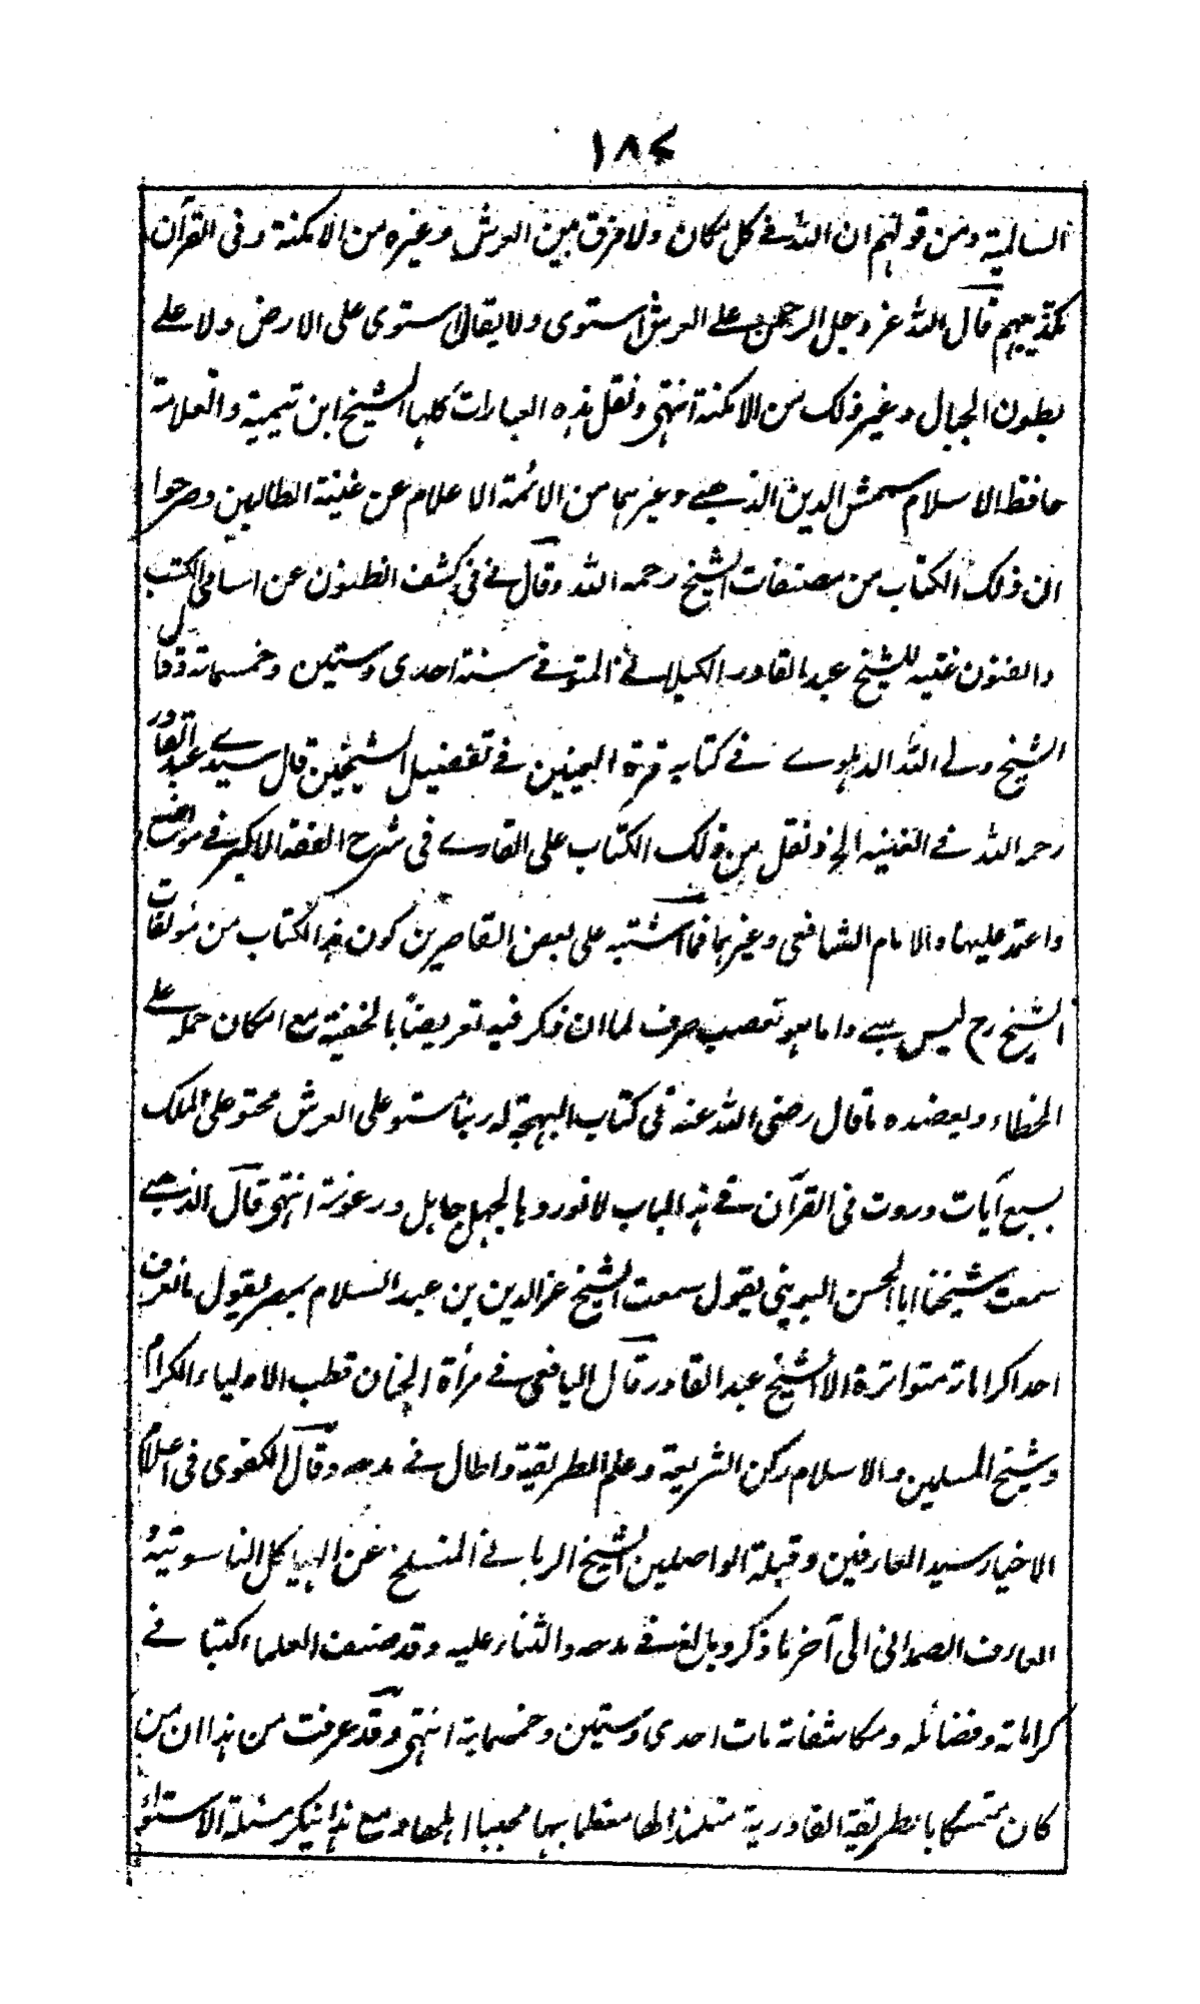 ١٨٤
السالمية ومن قولهم ان الله في كل مكان ولا فرق بين العرش وغيره من الامكنة وفى القرآن
تكذيبهم قال الله عز وجل الرحمن على العرش استوى ولا يقال استوى على الارض ولا على
بطون الجبال وغير ذلك من الامكنة انتهى ونقل هذه العبارات كلها الشيخ ابن تيمية والعلامة
حافظ الاسلام شمس الدين الذهبي وغيرهما من الائمة الاعلام عن غنية الطالبين وصرحوا
ان ذلك الكتاب من مصنفات الشيخ رحمه الله وقال في كشف الظنون عن اسامى الكتب
والفنون غنيه للشيخ عبد القادر الكيلاني المتوفى سنة احدى وستين وخمسماته وقال
الشيخ ولي الله الدهلوي في كتابه قرة العينين في تفضيل الشيخين قال سيدي عبد القادر
رحمه الله في الغنيه الخ ونقل من ذلك الكتاب على القاري فى شرح الفقه الاكبر في مواضع
واعتمد عليها والامام الشافعى وغيرهما فما اشتبه على بعض القاصرين كون هذا الكتاب من مؤلفات
الشيخ رح ليس بشيء وانما هو تعصب صرف لما ان ذكر فيه تعريضا بالحنفية مع امكان حمله على
الخطاء ويعضده ما قال رضى الله عنه فى كتاب البهجة له ربنا مستو على العرش محتو على الملك
بسبع آيات وردت فى القرآن في هذا الباب لا نوردها لجهل جاهل ورعونة انتهى قال الذهبي
سمعت شيخنا ابا الحسن اليونينى يقول سمعت الشيخ عز الدين بن عبد السلام بمصر يقول ما نعرف
احدا كراماته متواترة الا الشيخ عبد القادر قال اليافعى في مرأة الجنان قطب الاولياء الكرام
وشيخ المسلمين والاسلام ركن الشريعة وعلم الطريقة واطال في مدحه وقال الكفوى فى اعلام
الاخيار سيد العارفين وقبلة الواصلين الشيخ الربانى المنسلخ عن الهياكل الناسوتية
العارف الصمدانى الى آخر ما ذكر وبالغ في مدحه والثناء عليه وقد صنف العلماء كتبا في
كراماته وفضائله ومكاشفاته مات احدى وستين وخمسماية انتهى وقد عرفت من هذا ان من
كان متمسكا بالطريقة القادرية معظما بها محبا اهلها ومع هذا ينكر مسئلة الاستواء